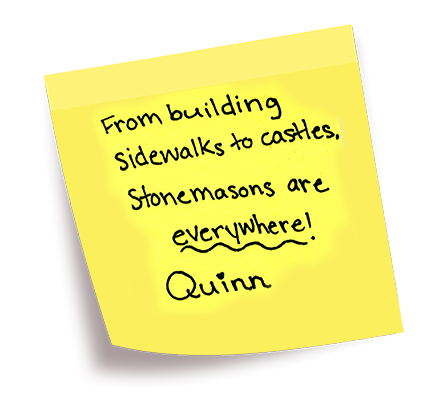 From building
sidewalks to castles.
Stonemasons are
everywhere!
Quinn